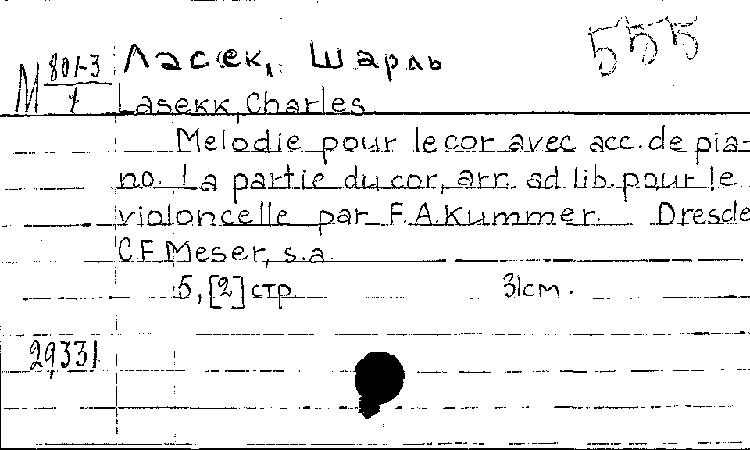 Ласек, Шарль
555
М 801-3
1
Lasekk, Charles
Melodie pour le cor avec acc. de pia-
no. La partie du cor, arr. ad lib. pour le
violoncelle par F.A. Kummer. Dresde
C.F. Meser, s.a.
5, [2] стр. 31cm.
29331